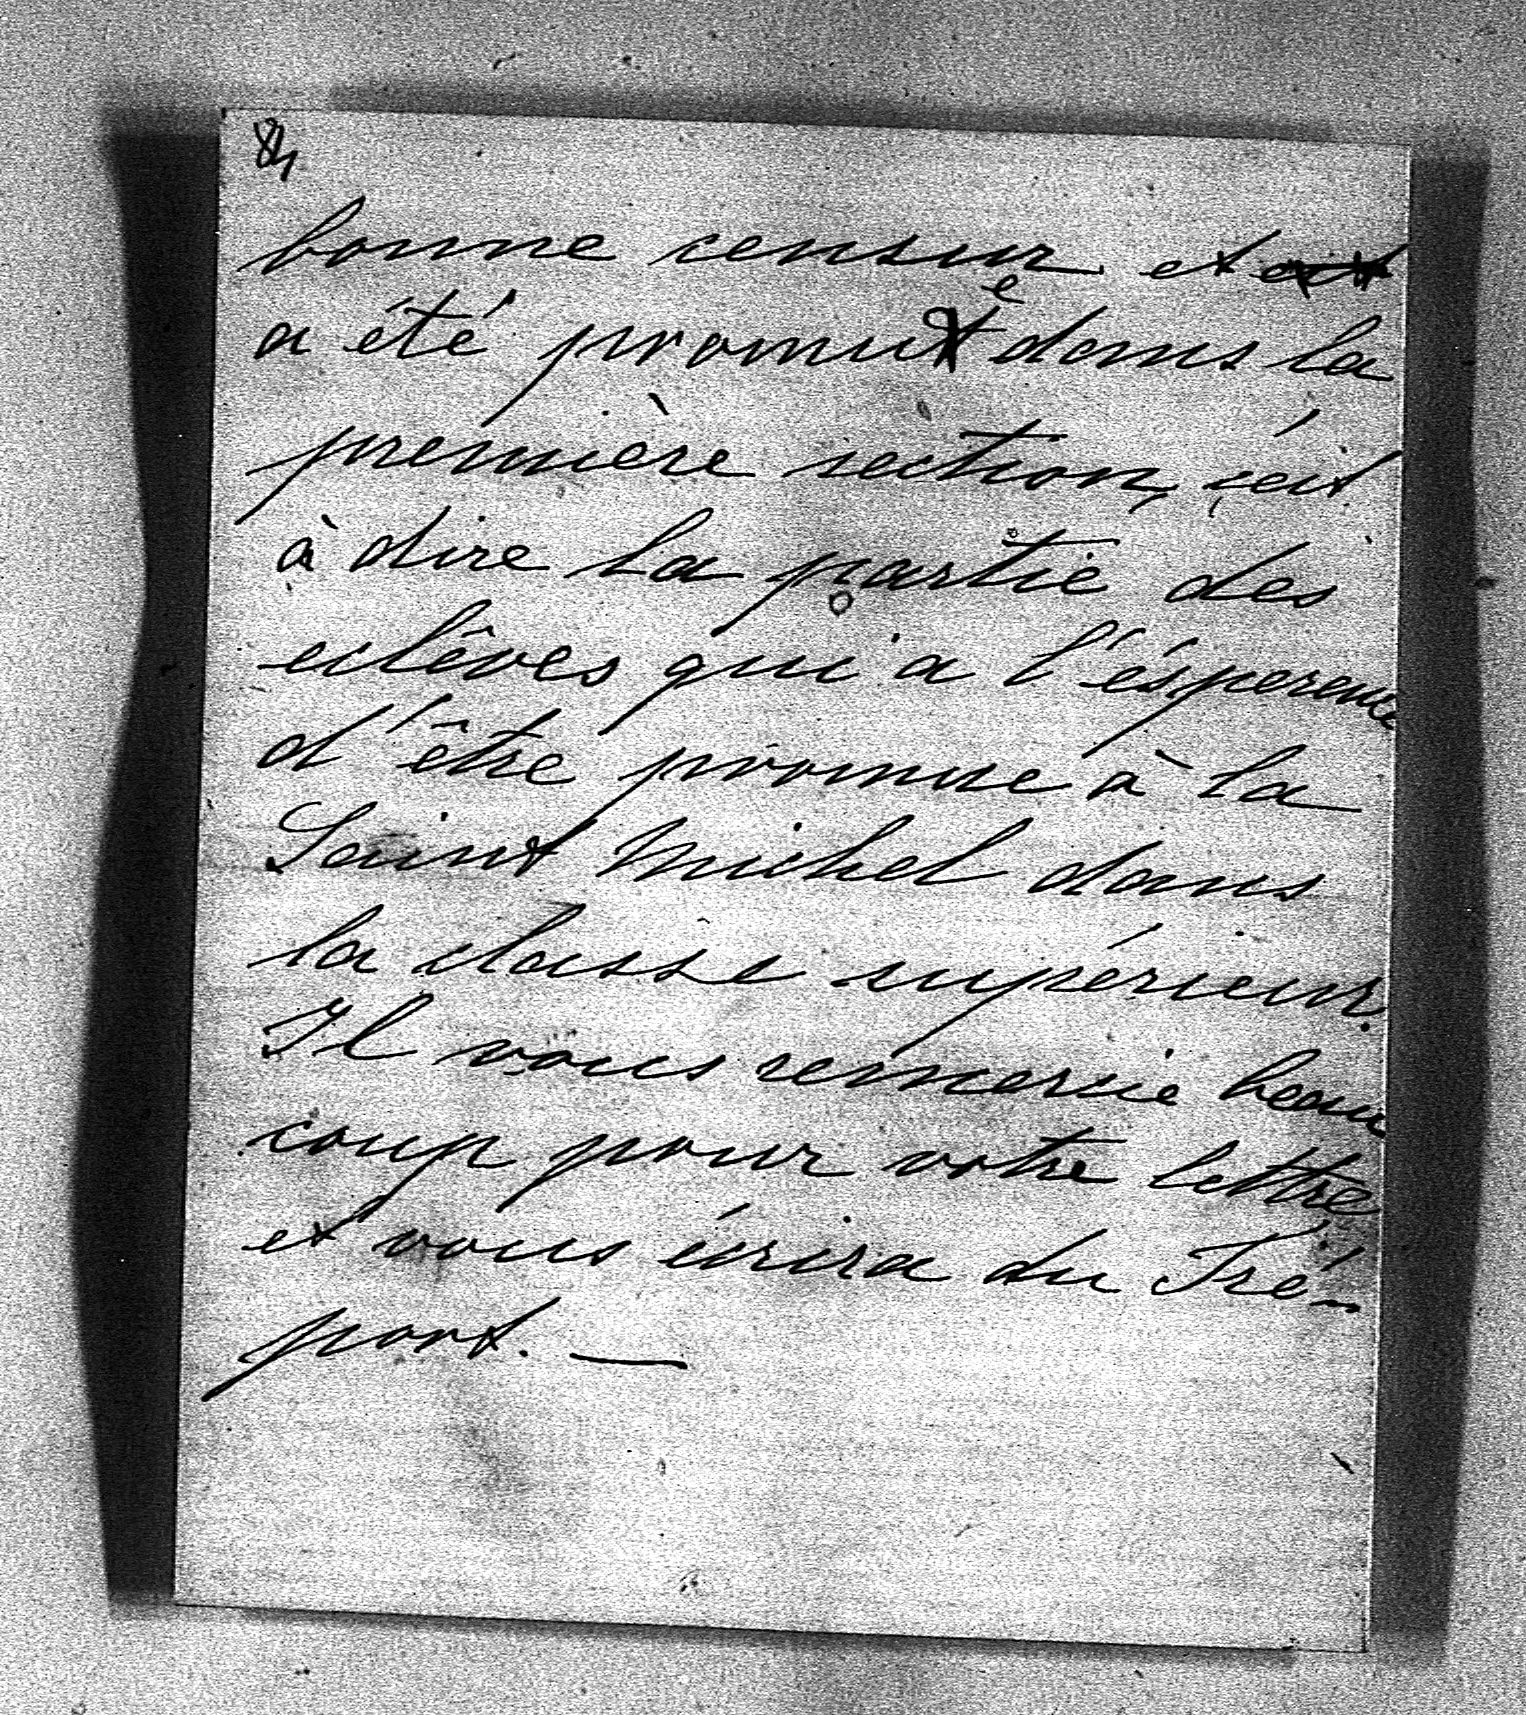 bonne censur et
a été promue dans la
première section, c'est
à dire la partie des
eclêves qui a l'ésperence
d'être promue à la
Saint Michel dans
la classe supérieur.
Il vous remercie beau
coup pour votre lettre
et vous écrira du Tré-
port. —